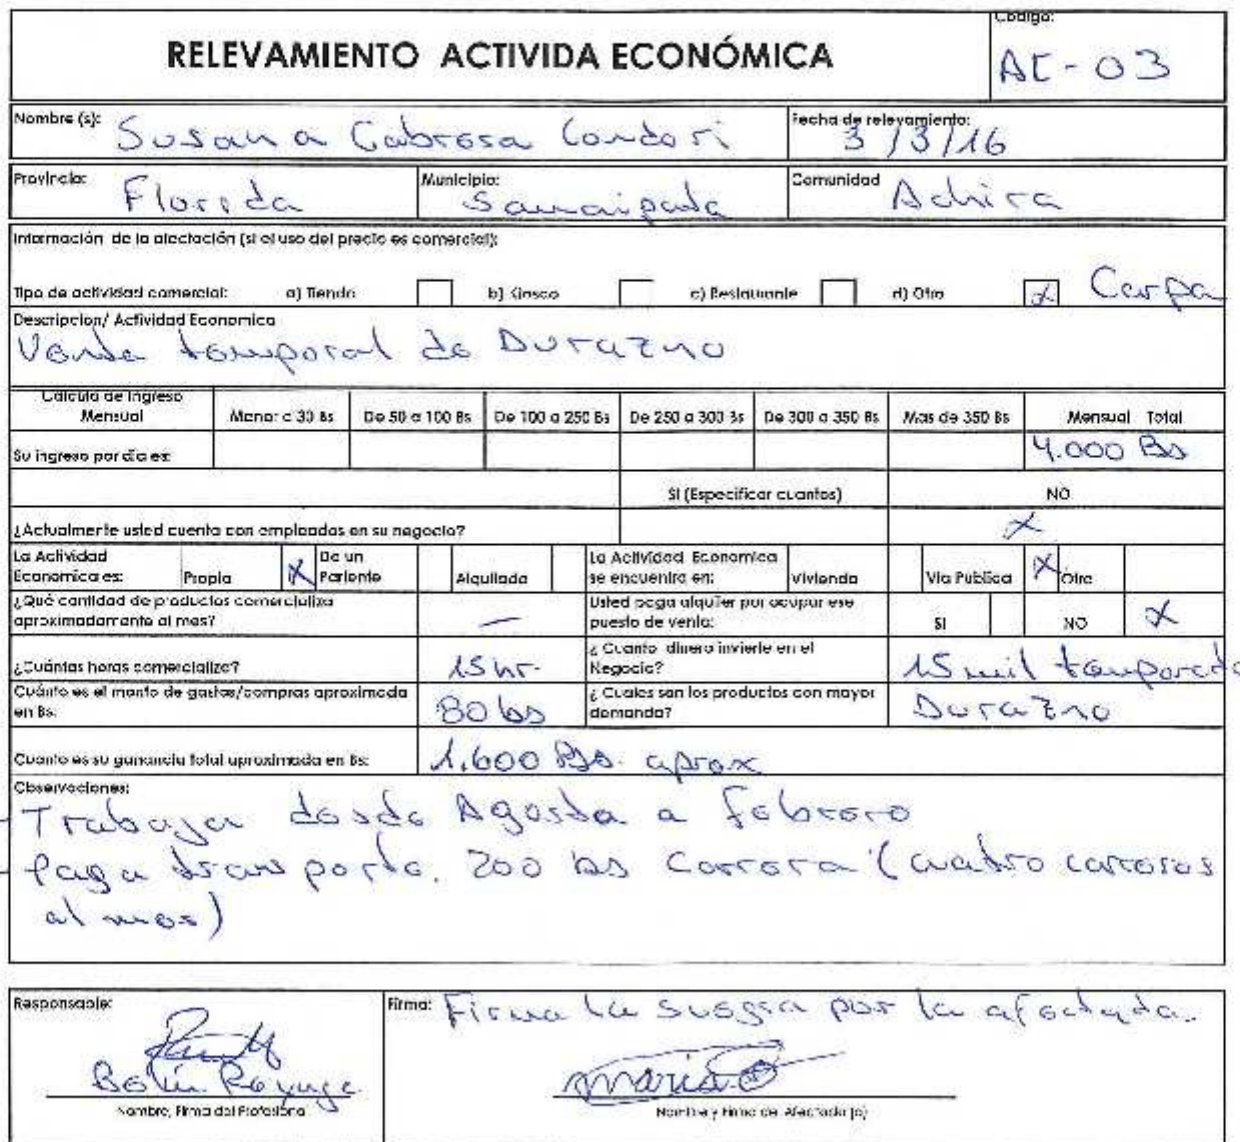 Código:
RELEVAMIENTO ACTIVIDA ECONÓMICA
AE-03
Nombre (s): Susana Cabrosa Condori
Fecha de relevamiento: 3/3/16
Provincia: Florida
Municipio: Samaipata
Comunidad Achira
Información de la afectación (si el uso del precio es comercial):
Tipo de actividad comercial: a) Tienda b) Kiosco c) Restaurante d) Otro x Carpa
Descripcion/ Actividad Economica
Venta temporal de Durazno
Calculo de Ingreso Mensual
Menor a 30 Bs
De 50 a 100 Bs
De 100 a 250 Bs
De 250 a 300 Bs
De 300 a 350 Bs
Mas de 350 Bs
Mensual Total
Su ingreso por día es:
4.000 Bs
SI (Especificar cuantos)
NO
¿Actualmente usted cuenta con empleados en su negocio?
x
La Actividad Economica es: Propia x De un Pariente Alquilada
La Actividad Economica se encuentra en: Vivienda Via Publica x Otro
¿Qué cantidad de productos comercializa aproximadamente al mes? —
Usted paga alquiler por ocupar ese puesto de venta: SI NO x
¿Cuántas horas comercializa? 15 hr.
¿ Cuanto dinero invierte en el Negocio? 15 mil temporada
Cuánto es el monto de gastos/compras aproximada en Bs: 80 bs
¿ Cuales son los productos con mayor demanda? Durazno
Cuanto es su ganancia total aproximada en Bs: 1.600 Bs. aprox
Observaciones:
- Trabaja desde Agosto a febrero
- Paga transporte. 200 bs Carrera (cuatro carreras
al mes)
Responsable:
Firma: Firma la suegra por la afectada.
Maria
Nombre, Firma del Profesional
Nombre y Firma del Afectado (a)